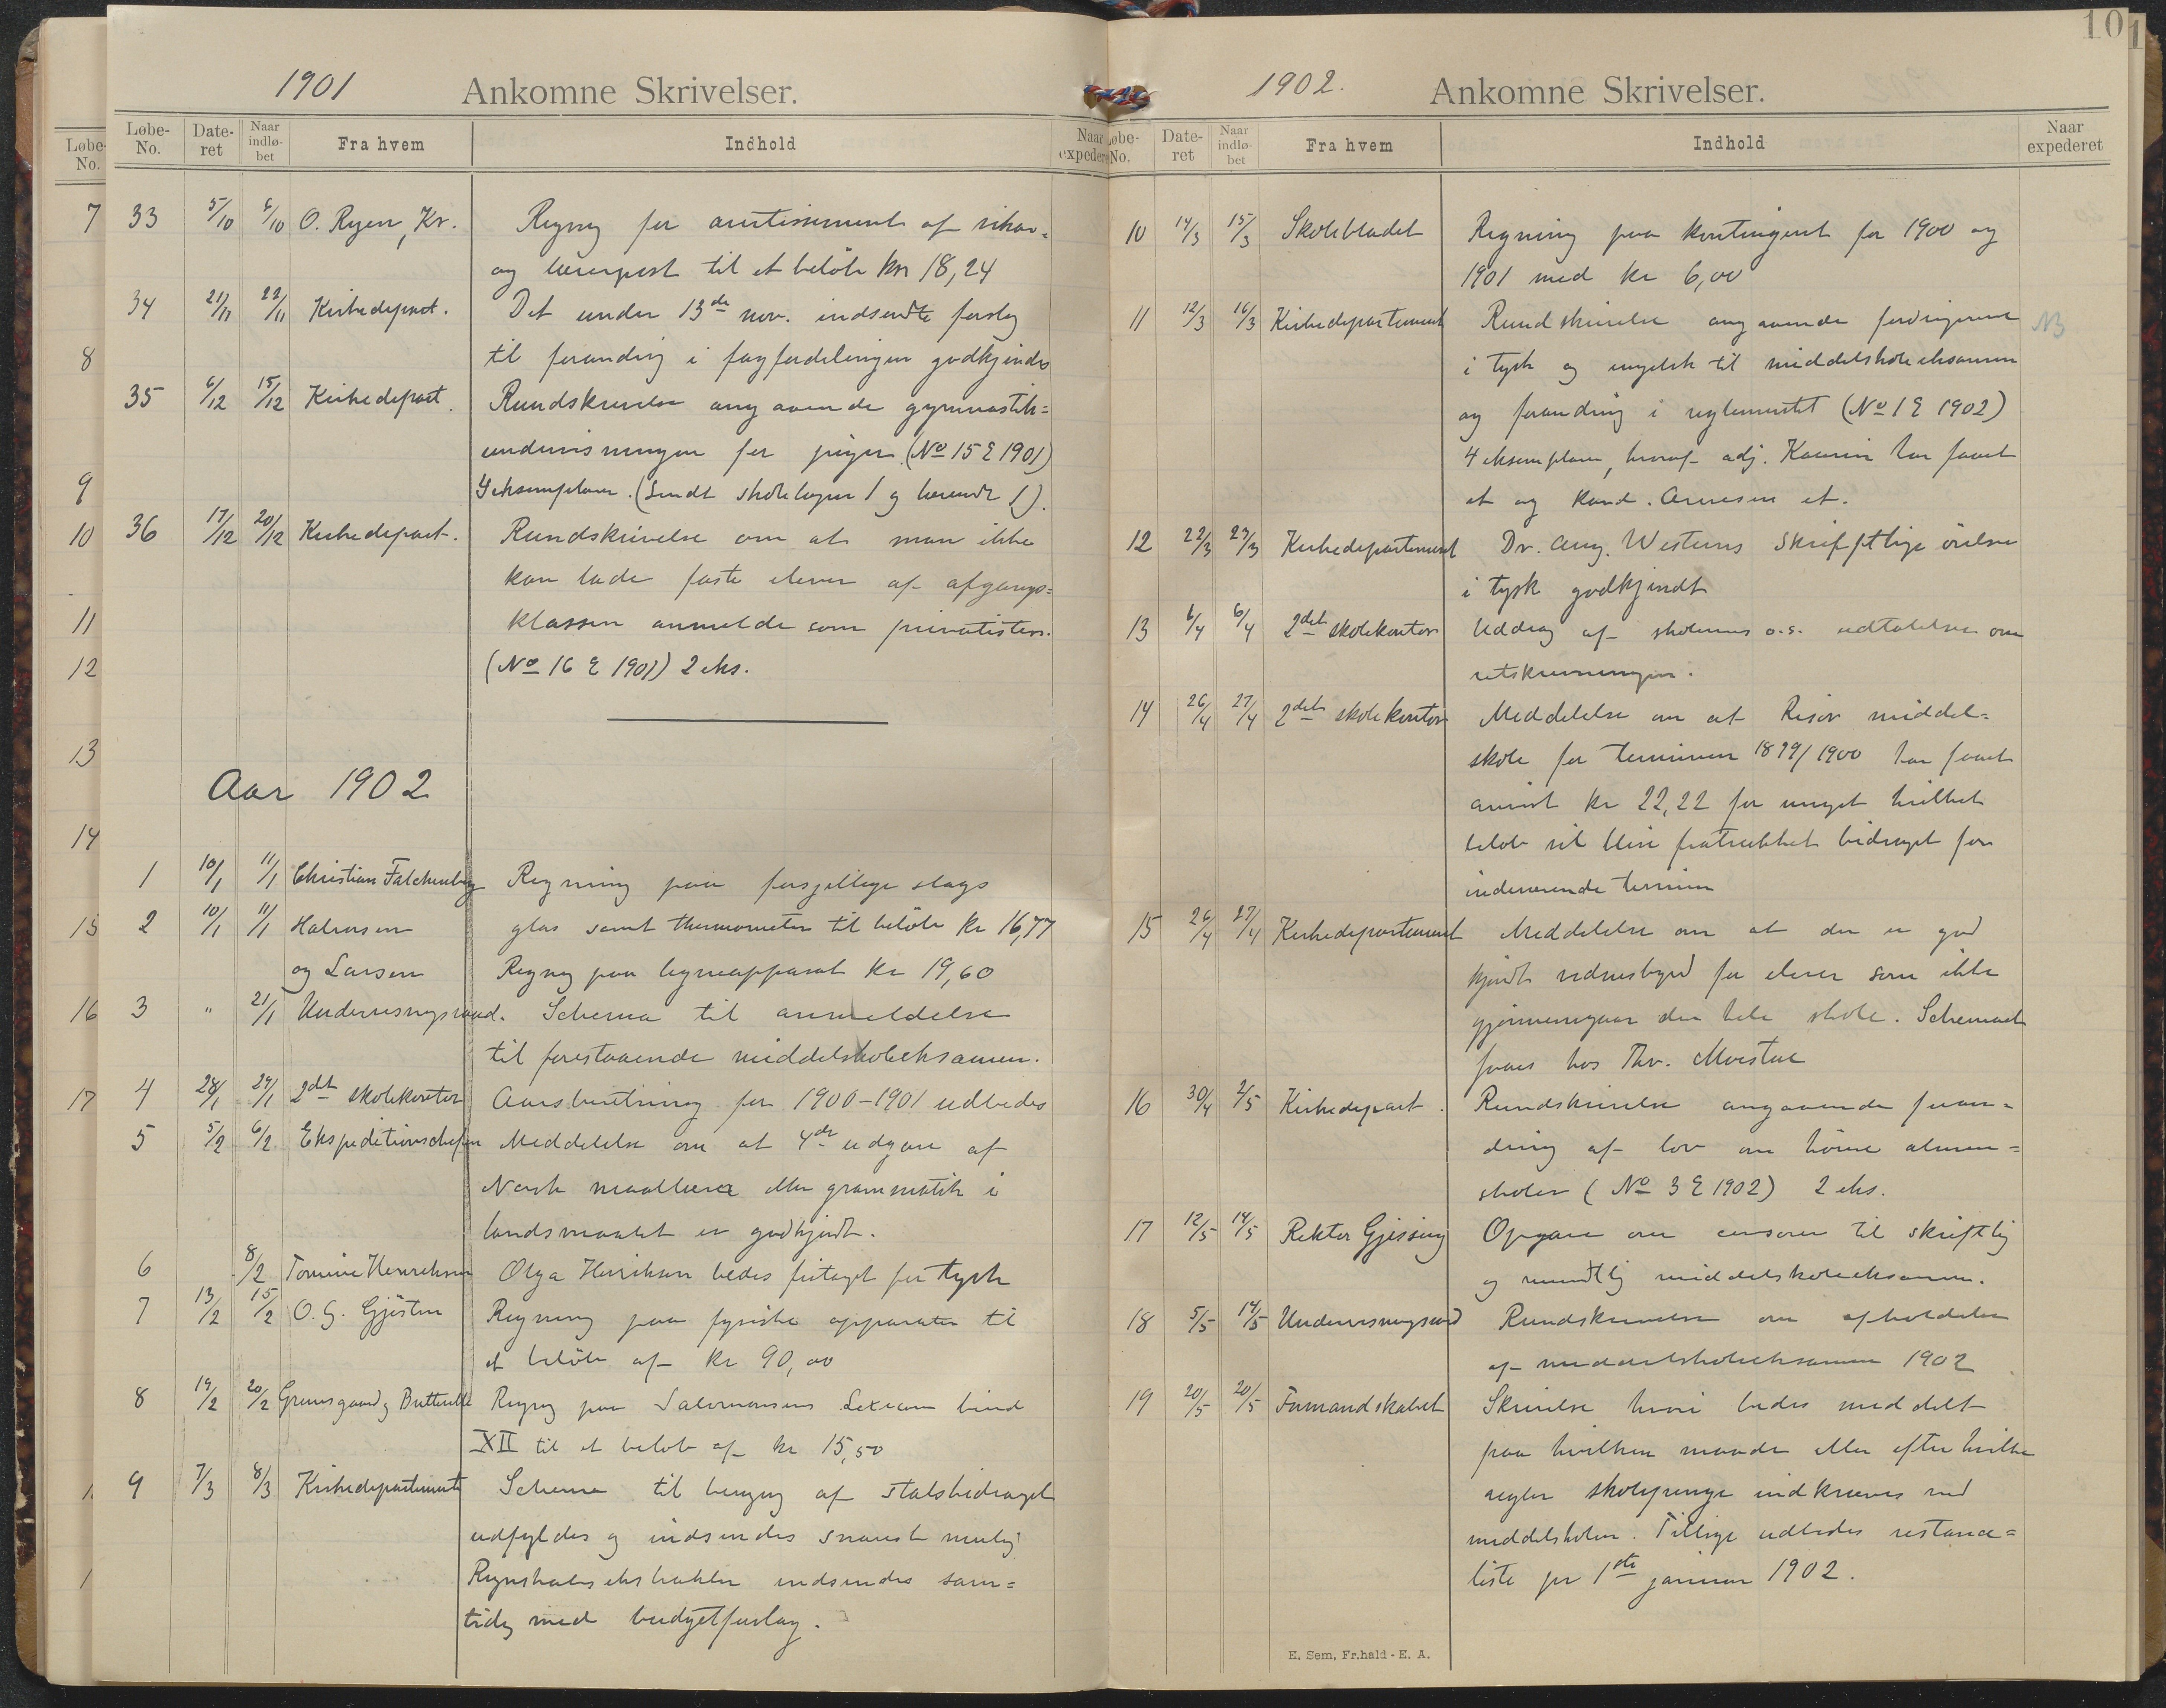 1901 Ankomne Skrivelser.
Løbe-No. Dateret Naar indløbet Fra hvem Indhold Naar expederet
33 5/10 6/10 O. Ryen, Kr. Regning for avertissement af vikar=
og lærerpost til et beløb kr 18,24
34 21/11 22/11 Kirkedepart. Det under 13de nov. indsendte forslag
til forandring i fagfordelingen godkjendes
35 6/12 15/12 Kirkedepart. Rundskrivelse angaaende gymnastik=
undervisningen for piger. (No 15 E 1901)
4 eksemplarer. (Sendt skolelægen 1 og 1).
36 17/12 20/12 Kirkedepart. Rundskrivelse om at man ikke
kan lade faste elever af afgangs=
klassen anmelde som privatister.
(No 16 E 1901) 2 eks.
Aar 1902
1 10/1 11/1 Christian Falchenberg Regning paa forsjellige slags
2 10/1 11/1 Halvorsen glas samt thermometer til beløb kr 16,77
og Larsen Regning paa apparat kr 19,60
3 " 21/1 Undervisningsraad. Schema til anmeldelse
til forestaaende middelskoleeksamen.
4 28/1 29/1 2det skolekontor Aarsberetning for 1900-1901 udbedes
5 5/2 6/2 Ekspeditionschefen Meddelelse om at 4de udgave af
Norsk maallære eller grammatik i
landsmaalet er godkjendt.
6 8/2 Tomine Henriksen Olga Henriksen bedes fritaget for tysk
7 13/2 15/2 O. G. Gjøsten Regning paa fysiske apparater til
et beløb af kr 90,00
8 19/2 20/2 Regning paa Salomonsens Lexicon bind
XII til et beløb af kr 15,50
9 7/3 8/3 Kirkedepartementet Schema til beregning af statsbidraget
udfyldes og indsendes snarest mulig
Regnskabsekstrakter indsendes sam=
tidig med budgetforslag.
101
1902. Ankomne Skrivelser.
Løbe-No. Dateret Naar indløbet Fra hvem Indhold Naar expederet
10 14/3 15/3 Skolebladet Regning paa kontingent for 1900 og
1901 med kr 6,00
11 12/3 16/3 Kirkedepartement Rundskrivelse angaaende fordringerne NB
i tysk og engelsk til middelskoleeksamen
og forandring i reglementet (No 1 E 1902)
4 eksemplarer, hvoraf adj. Kaurin har faaet
et og kand. Arnesen et.
12 22/3 23/3 Kirkedepartement Dr. Aug. Westerns skriftlige øvelser
i tysk godkjendt
13 6/4 6/4 2det skolekontor Uddrag af skolernes o.s. udtalelser om
retskrivningen.
14 26/4 27/4 2det skolekontor Meddelelse om at Risør middel=
skole for terminen 1899/1900 har faaet
anvist kr 22,22 for meget hvilket
beløb vil blive fratrukket bidraget for
indeværende termin
15 26/4 27/4 Kirkedepartement Meddelelse om at der er god
kjendt vidnesbyrd for elever som ikke
gjennemgaar den hele skole. Schemaet
faaes hos Thv. Moestue
16 30/4 2/5 Kirkedepart. Rundskrivelse angaaende foran=
dring af lov om høiere almen=
skoler (No 3 E 1902) 2 eks.
17 12/5 14/5 Rektor Gjessing Opgave om censorer til skriftlig
og mundtlig middelskoleeksamen.
18 5/5 14/5 Undervisningsraad Rundskrivelse om afholdelse
af middelskoleeksamen 1902
19 20/5 20/5 Formandskabet Skrivelse hvori bedes meddelt
paa hvilken maade eller efter hvilke
regler skolepenge indkræves ved
middelskolen. Tillige udbedes restance=
liste pr 1ste januar 1902.
E. Sem, Fr.hald - E. A.